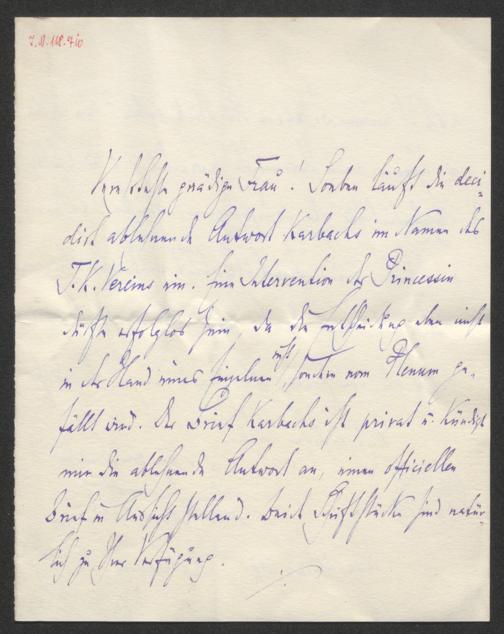 I.N. 118.710
Verehrteste gnädige Frau! Soeben läuft die deci-
dirt ablehnende Antwort Karbachs im Namen des
J. K. Vereins ein. Eine Intervention der Princessin
dürfte erfolglos sein, da die Entscheidung eben nicht
in der Hand eines Einzelnen ist, sondern vom Plenum ge-
fällt wird. Der Brief Karbachs ist privat u. kündigt
mir die ablehnende Antwort an, einen officiellen
Brief in Aussicht stellend. Beide Schriftstücke sind natür-
lich zu Ihrer Verfügung.